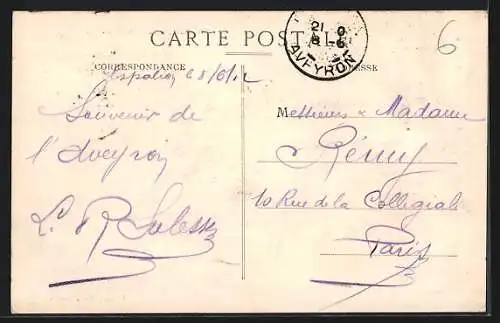 CARTE POSTALE
21
AVEYRON
CORRESPONDANCE
6
Espalion
Souvenir de
l'Aveyron
Messieurs & Madame
Rémy
10 Rue de la Collégiale
Paris